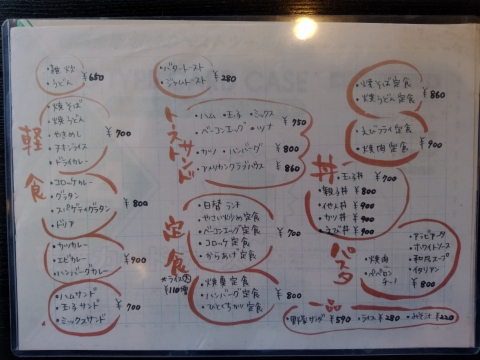 軽食
・雑炊
・うどん
¥650
・焼そば
・焼うどん
・やきめし
・チキンライス
・ドライカレー
¥700
・コロッケカレー
・グラタン
・スパゲティグラタン
・ドリア
¥800
・カツカレー
・エビカレー
・ハンバーグカレー
¥900
・ハムサンド
・玉子サンド
・ミックスサンド
¥700
・バタートースト
・ジャムトースト
¥280
トーストサンド
・ハム ・玉子 ・ミックス
・ベーコンエッグ ・ツナ
¥750
・カツ ・ハンバーグ ¥800
・アメリカンクラブハウス ¥860
定食
・日替ランチ
・やさい炒め定食
・ベーコンエッグ定食
・コロッケ定食
・からあげ定食
¥700
※ライス大
¥110増
・焼魚定食
・ハンバーグ定食
・ひとくちカツ定食
¥800
・焼そば定食
・焼うどん定食
¥860
・えびフライ定食
・焼肉定食
¥900
丼
・玉子丼 ¥700
・親子丼 ¥800
・カツ丼 ¥900
・えび丼 ¥900
パスタ
・焼肉
・ペパロンチーノ
・アラビアータ
・ホワイトソース
・和風スープ
・イタリアン
¥800
一品
・野菜サラダ ¥590 ・ライス ¥280 ・みそ汁 ¥220